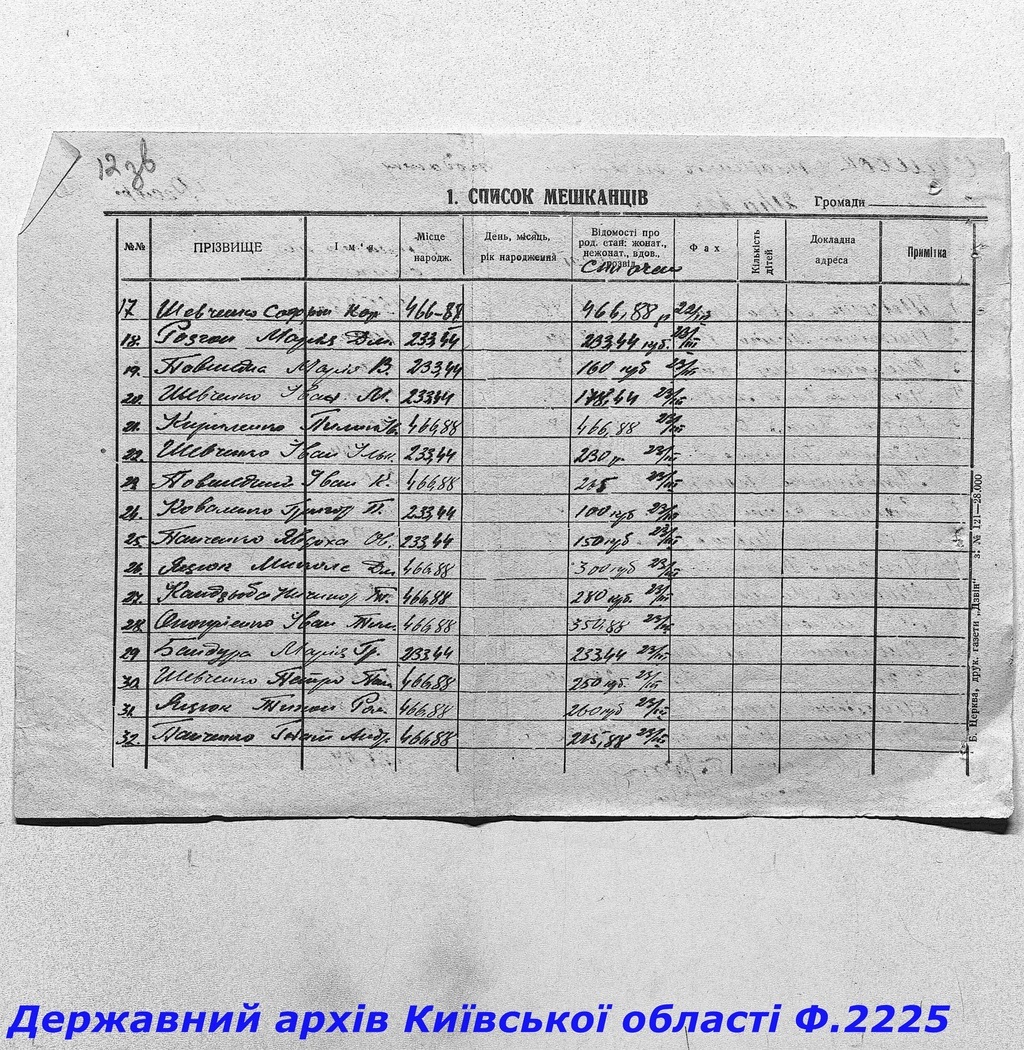 12 зв
1. СПИСОК МЕШКАНЦІВ
Громади
№№ ПРІЗВИЩЕ Ім'я Місце народж. День, місяць, рік народження Відомості про род. стан: жонат., нежонат., вдов., розвід. Фах Кількість дітей Докладна адреса Примітка
17 Шевченко 466-88 466,88 р 23/III
18. Розгон Марія Дм. 233,44 233,44 руб. 23/III
19. Марія В. 233,44 160 руб 23/III
20. Шевченко Іван М. 233,44 178,44 23/III
21. Кириленко 466,88 466,88 23/III
22. Шевченко Іван Ільк. 233,44 230 р 23/III
23 Іван К. 466,88 23/III
24. Коваленко Григор П. 233,44 100 руб 23/III
25 Панченко Явдоха Ів. 233,44 150 руб 23/III
26. Яцюк Микола Дм. 466,88 300 руб 23/III
27. Кандзюба Никинор 466,88 280 руб. 23/III
28. Онопрієнко Іван Тим. 466,88 350,88 23/III
29 Бандура Марія Гр. 233,44 233,44 23/III
30. Шевченко Петро 466,88 250 руб. 23/III
31. Яцюк Тихон Ром. 466,88 260 руб 23/III
32. Панченко Андр. 466,88 23/III
Б. Церква, друк. газети „Дзвін" з. № 121—28.000
Державний архів Київської області Ф.2225